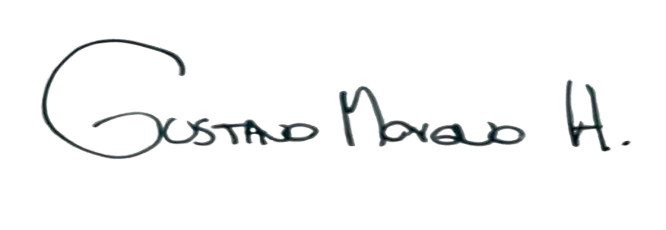 Gustavo Moreno H.